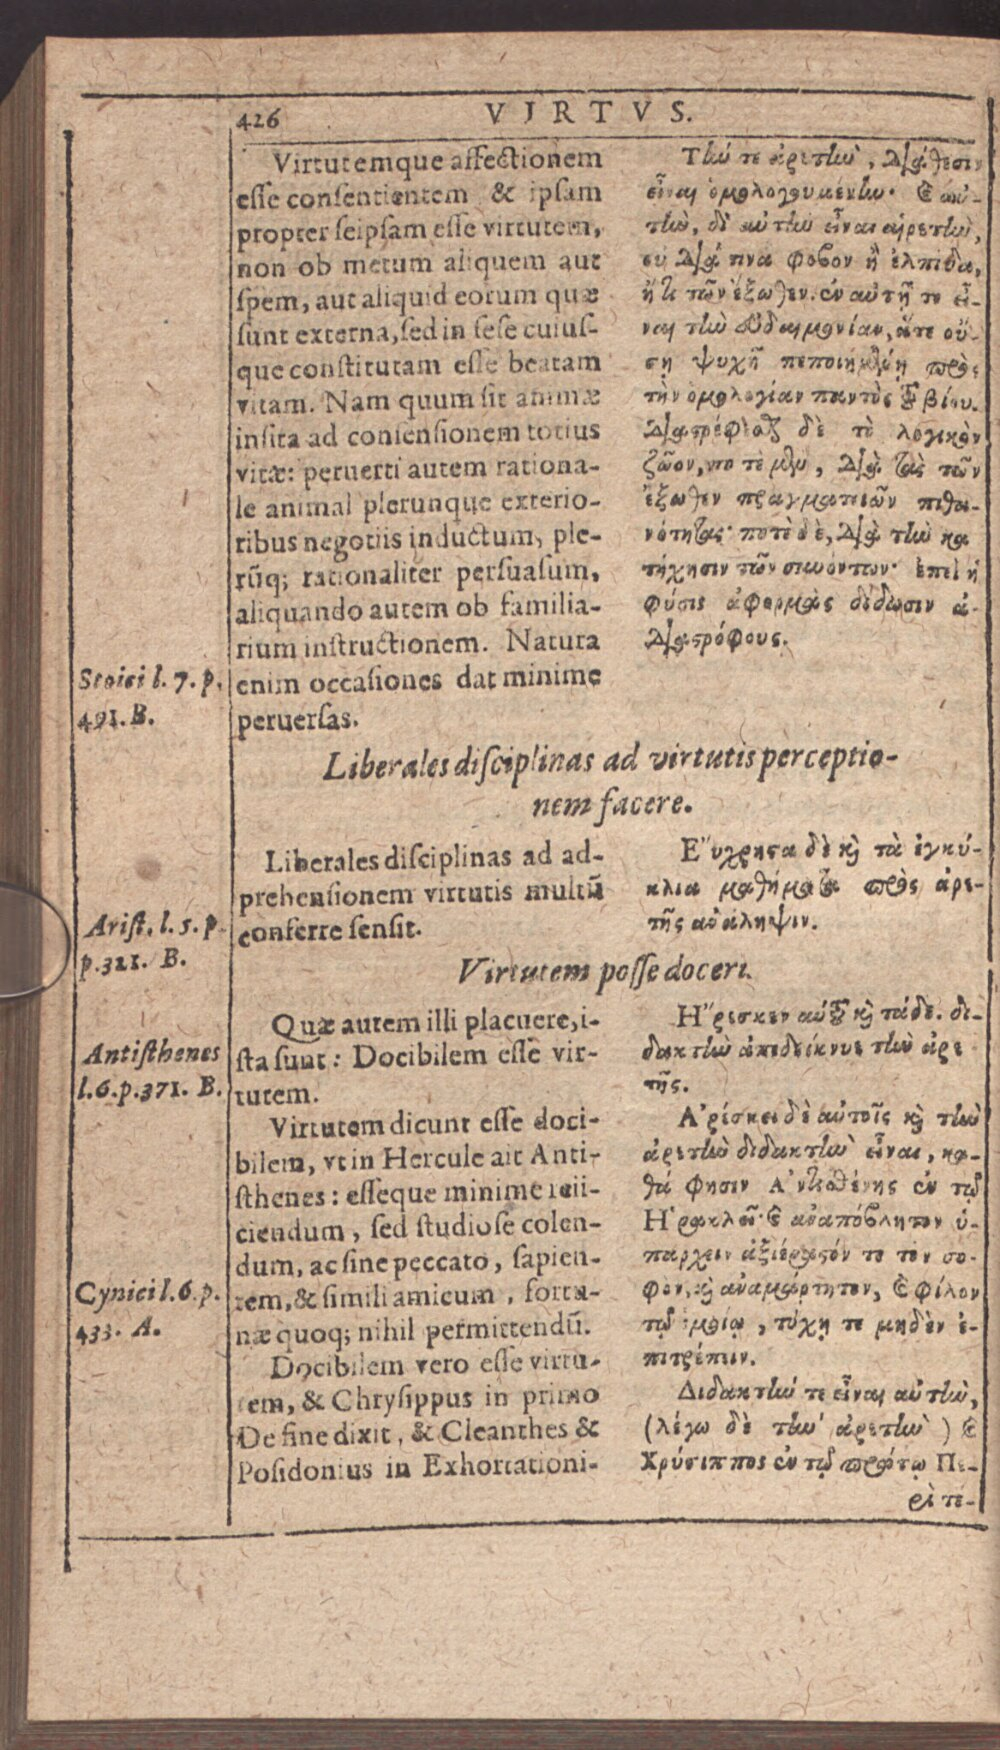 426
VIRTVS.
Virtutemque affectionem
esse consentientem & ipsam
propter seipsam esse virtutem,
non ob metum aliquem aut
spem, aut aliquid eorum quæ
sunt externa, sed in sese cuius-
que constitutam esse beatam
vitam. Nam quum sit animæ
insita ad consensionem totius
vitæ: peruerti autem rationa-
le animal plerunque exterio-
ribus negotiis inductum, ple-
rũq; rationaliter persuasum,
aliquando autem ob familia-
rium instructionem. Natura
enim occasiones dat minime
peruersas.
Stoici l. 7. p.
491. B.
Τίω τε ἀρετίω, Διάθεσιν
εἶναι ὁμολογουμένίω· ϗ αὐ-
τίω, δι' αὐτίω εἶναι αἱρετίω,
οὐ Διά τινα φόβον ἢ ἐλπίδα,
ἤ τι τῶν ἔξωθεν. ἐν αὐτῇ τε εἶ-
ναι τίω εὐδαιμονίαν, ἅτε οὔ-
ση ψυχῇ πεποιημένη πρὸς
τὴν ὁμολογίαν παντὸς τοῦ βίου.
Διαστρέφεσθαι δὲ τὸ λογικὸν
ζῶον, πο τὲ μὲν, Διὰ τὰς τῶν
ἔξωθεν πραγματειῶν πιθα-
νότητας· ποτὲ δὲ, Διὰ τίω κα
τήχησιν τῶν συνόντων· ἐπεὶ ἡ
φύσις ἀφορμὰς δίδωσιν ἀ-
Διαστρόφους.
Liberales disciplinas ad virtutis perceptio-
nem facere.
Liberales disciplinas ad ad-
prehensionem virtutis multũ
conferre sensit.
Arist. l. 5. p.
p. 321. B.
Εὔχρηστα δὲ ϗ τὰ ἐγκύ-
κλια μαθήματα πρὸς ἀρε-
τῆς ἀνάληψιν.
Virtutem posse doceri.
Quæ autem illi placuere, i-
sta sunt: Docibilem esse vir-
tutem.
Antisthenes
l. 6. p. 371. B.
Ἤρεσκεν αὐτῷ ϗ τάδε. δι-
δακτίω ἀπεδείκνυε τίω ἀρε
τῆς.
Virtutem dicunt esse doci-
bilem, vt in Hercule ait Anti-
sthenes: esseque minime reii-
ciendum, sed studiose colen-
dum, ac sine peccato, sapien-
tem, & simili amicum, fortu-
næ quoq; nihil permittendũ.
Cynici l. 6. p.
433. A.
Ἀρέσκει δὲ αὐτοῖς ϗ τίω
ἀρετίω διδακτίω εἶναι, κα-
θά φησιν Ἀντισθένης ἐν τῷ
Ἡρακλεῖ· ϗ ἀναπόβλητον ὑ-
πάρχειν ἀξιέραστόν τε τὸν σο-
φὸν, ϗ ἀναμάρτητον, ϗ φίλον
τῷ ὁμοίῳ, τύχῃ τε μηδὲν ἐ-
πιτρέπειν.
Docibilem vero esse virtu-
tem, & Chrysippus in primo
De fine dixit, & Cleanthes &
Posidonius in Exhortationi-
Διδακτίω τε εἶναι αὐτίω,
(λέγω δὲ τίω ἀρετίω) ϗ
Χρύσιππος ἐν τῷ πρώτῳ Πε-
ρὶ τέ-